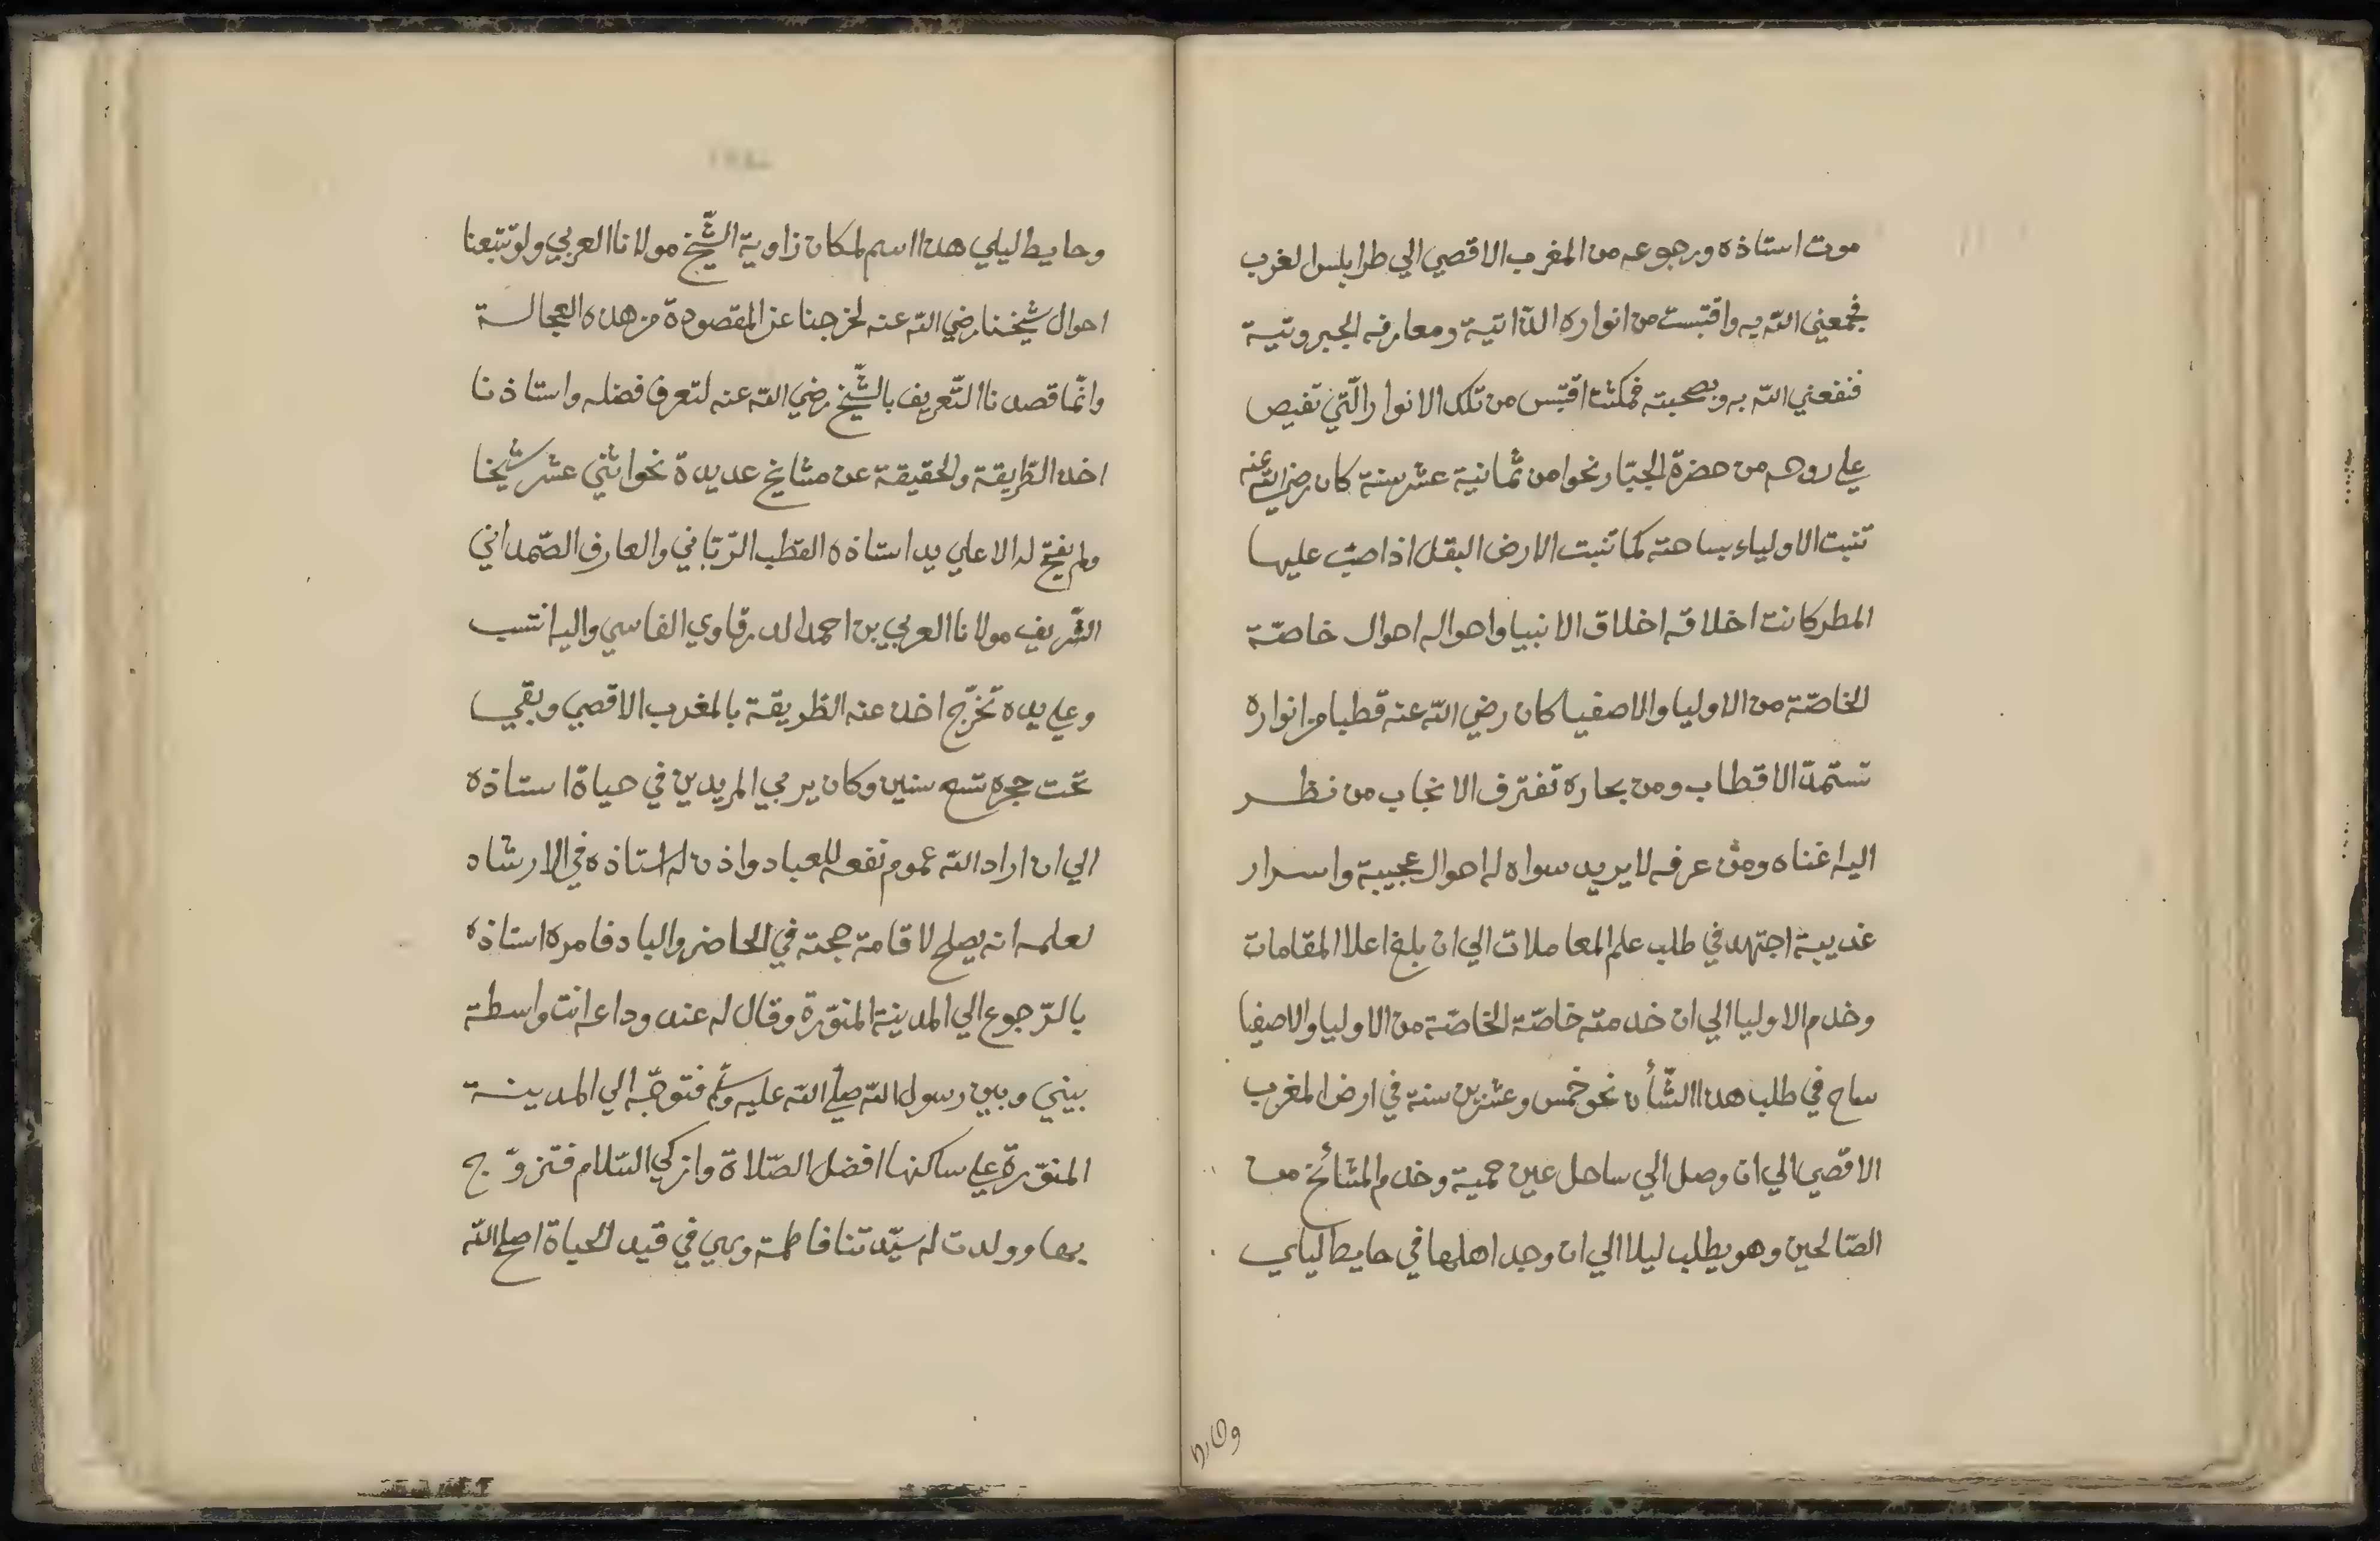 موت استاذه ورجوعه من المغرب الاقصي الي طرابلس الغرب
فجمعني الله به واقتبست من انواره الذّاتية ومعارفه الجبروتية
فنفعني الله به وبصحبته فمكثت اقتبس من تلك الانوار الّتي تفيض
علي روحه من حضرة الجبّار نحوا من ثمانية عشر سنة كان رضي الله عنه
تنبت الاولياء بساحته كما تنبت الارض البقل اذا صبّ عليها
المطر كانت اخلاقه اخلاق الانبيا واحواله احوال خاصّة
الخاصّة من الاوليا والاصفيا كان رضي الله عنه قطبا من انواره
تستمدّ الاقطاب ومن بحاره تغترف الانجاب من نظر
اليه اغناه ومن عرفه لا يريد سواه له احوال عجيبة واسرار
غريبة اجتهد في طلب علم المعاملات الي ان بلغ اعلا المقامات
وخدم الاوليا الي ان خدمته خاصّة الخاصّة من الاوليا والاصفيا
ساح في طلب هذا الشّأن نحو خمس وعشرين سنة في ارض المغرب
الاقصي الي ان وصل الي ساحل عين حمية وخدم المشائخ من
الصّالحين وهو يطلب ليلا الي ان وجد اهلها في حايط ليلي
وحايط ليلي هذا اسم لمكان زاوية الشّيخ مولانا العربي ولو تتبعنا
احوال شيخنا رضي الله عنه لخرجنا عن المقصودة من هذه العجالة
وانّما قصدنا التّعريف بالشّيخ رضي الله عنه لتعرف فضله واستاذنا
اخذ الطّريقة والحقيقة عن مشايخ عديدة نحو اثني عشر شيخا
ولم يفتح له الا علي يد استاذه القطب الرّبّاني والعارف الصّمداني
الشّريف مولانا العربي بن احمد الدرقاوي الفاسي واليه انتسب
وعلي يده تخرّج اخذ عنه الطّريقة بالمغرب الاقصي وبقي
تحت حجره تسع سنين وكان يربي المريدين في حياة استاذه
الي ان اراد الله عموم نفعه للعباد واذن له استاذه في الارشاد
لعلمه انه يصلح لاقامة حجته في الحاضر والباد فامره استاذه
بالرّجوع الي المدينة المنوّرة وقال له عند وداعه انت واسطة
بيني وبين رسول الله صلّي الله عليه وسلّم فتوجّه الي المدينة
المنوّرة علي ساكنها افضل الصّلاة وازكي السّلام فتزوّج
بها وولدت له سيّدتنا فاطمة وهي في قيد الحياة اصلح الله